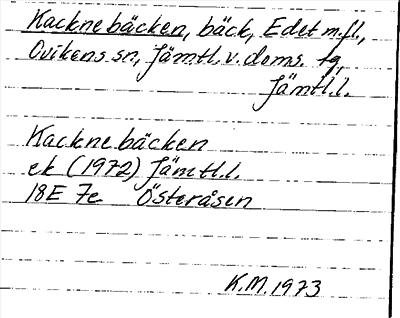 Kacknebäcken, bäck, Edet m.fl.,
Ovikens sn, Jämtl. v. doms. tg,
Jämtl.l.
Kacknebäcken
ek (1972) Jämtl.l.
18E 7e Österåsen
K.M. 1973